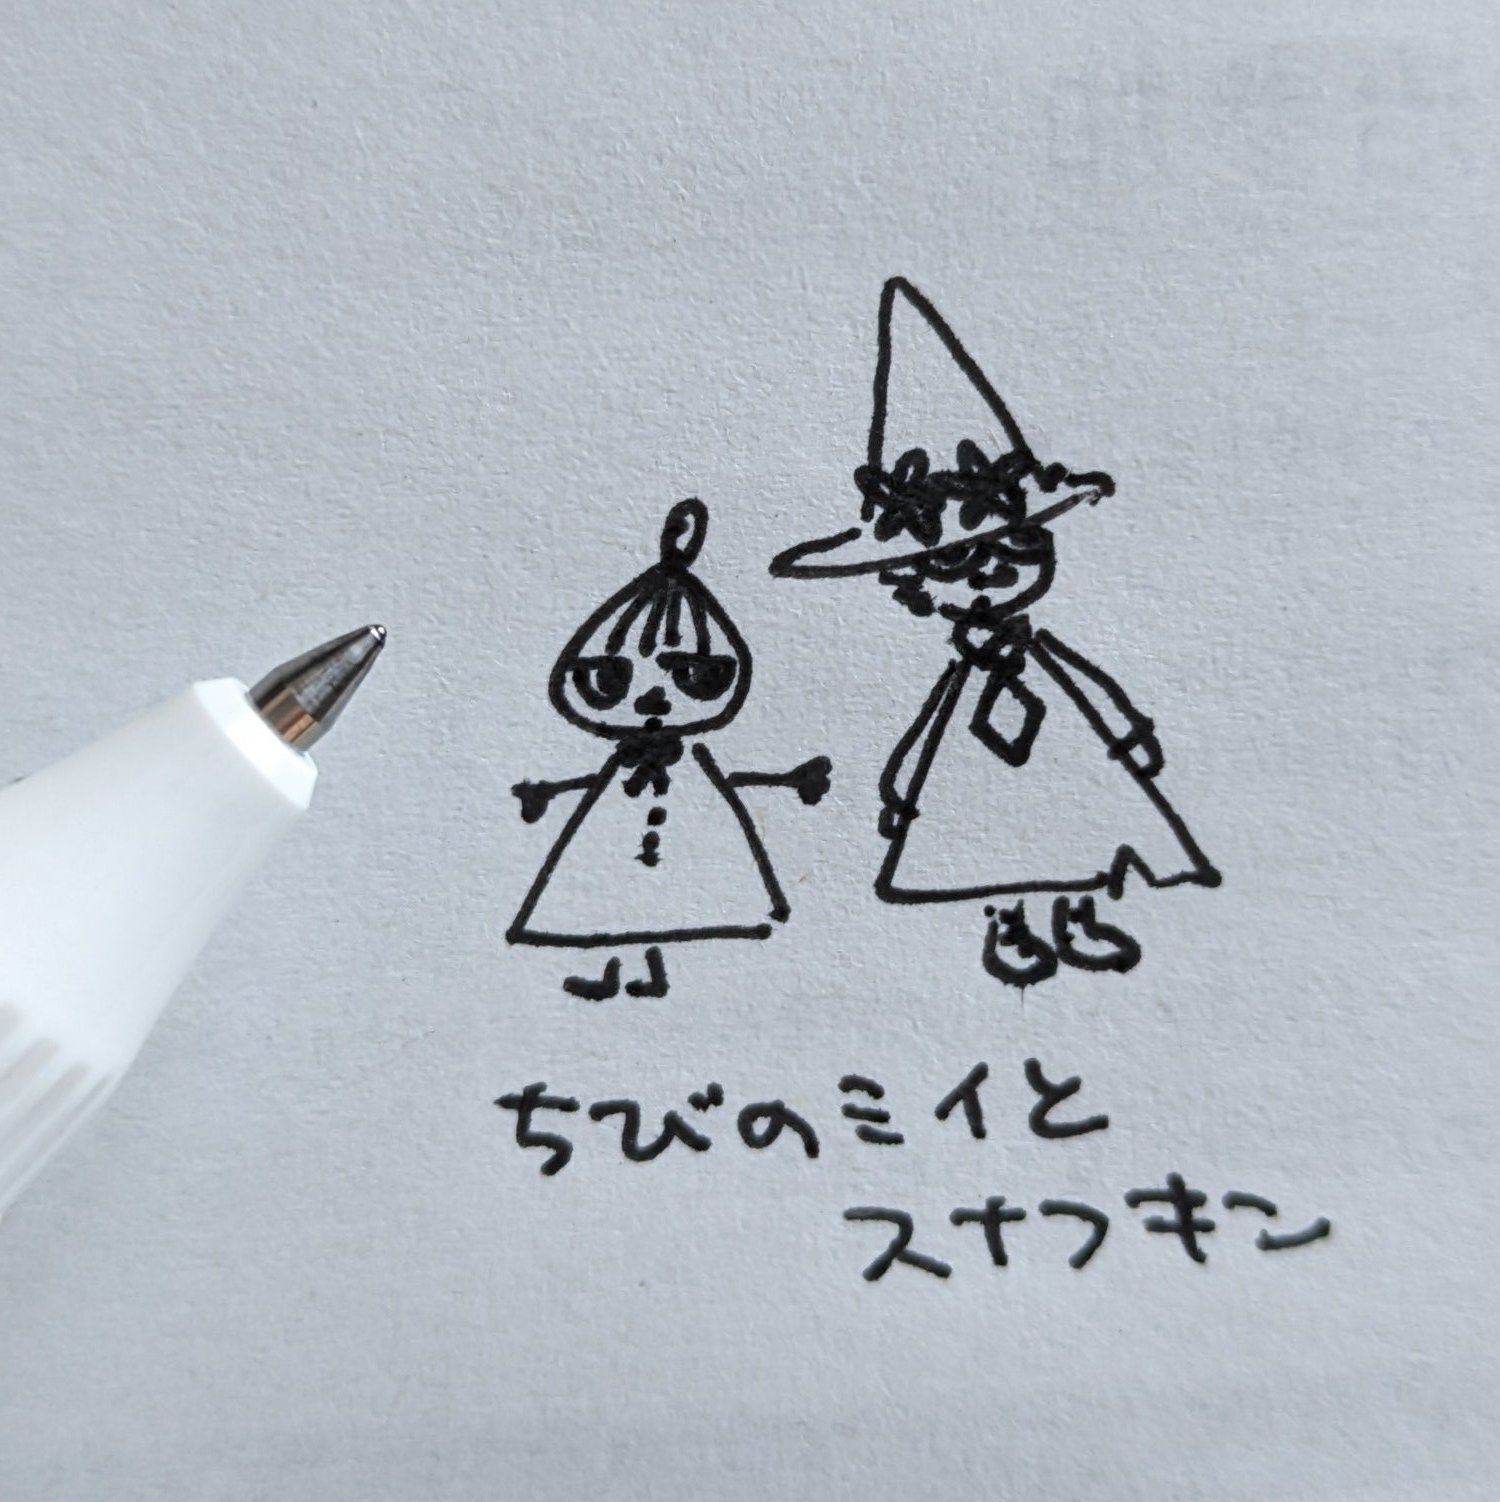 ちびのミイと
スナフキン